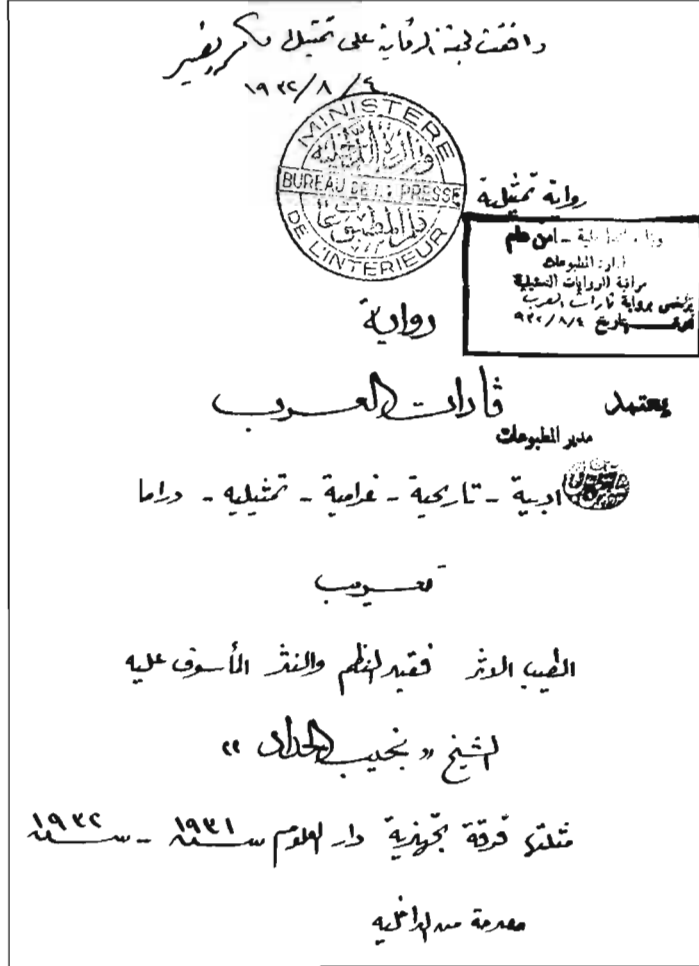 وافقت لجنة الرقابة على تمثيلها
١٩٣٢/٨/٤
MINISTERE
وزارة الداخلية
BUREAU DE LA PRESSE
قلم المطبوعات
DE L'INTERIEUR
رواية تمثيلية
وزارة الداخلية - امن عام
ادارة المطبوعات
مراقبة الروايات التمثيلية
يرخص برواية ثارات العرب
بتاريخ ٩٣٢/٨/٤
رواية
ثارات العرب
يعتمد
مدير المطبوعات
ادبية - تاريخية - غرامية - تمثيلية - دراما
تعريب
الطيب الاثر فقيد النظم والنثر المأسوف عليه
الشيخ " نجيب الحداد "
مثلتها فرقة تجهيزية دار العلوم سنة ١٩٣١ - سنة ١٩٣٢
مصرحة من الداخلية